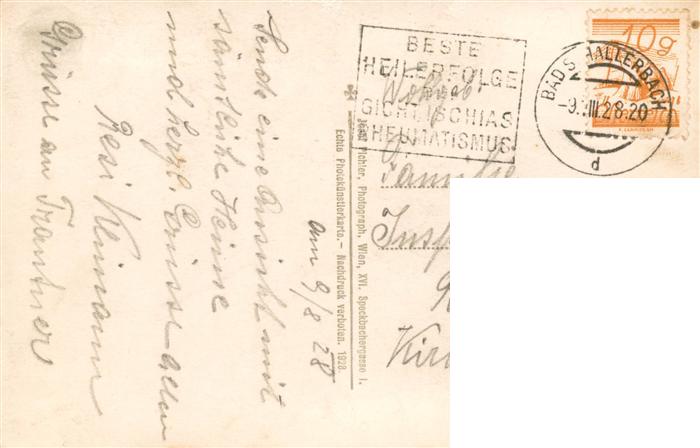 am 9/8 28
Sende eine Ansicht mit
sämtliche Heime
und herzl. Grüsse allen
Resi Kleimann
Grüsse an Trantner
BESTE
HEILERFOLGE
GICHT ISCHIAS
RHEUMATISMUS
BAD SCHALLERBACH
-9.VIII.28.20
d
10g
Josef Pichler, Photograph, Wien, XVI. Speckbachergasse 1.
Echte Photokünstlerkarte.- Nachdruck verboten. 1928.
Familie
Insp
Kir